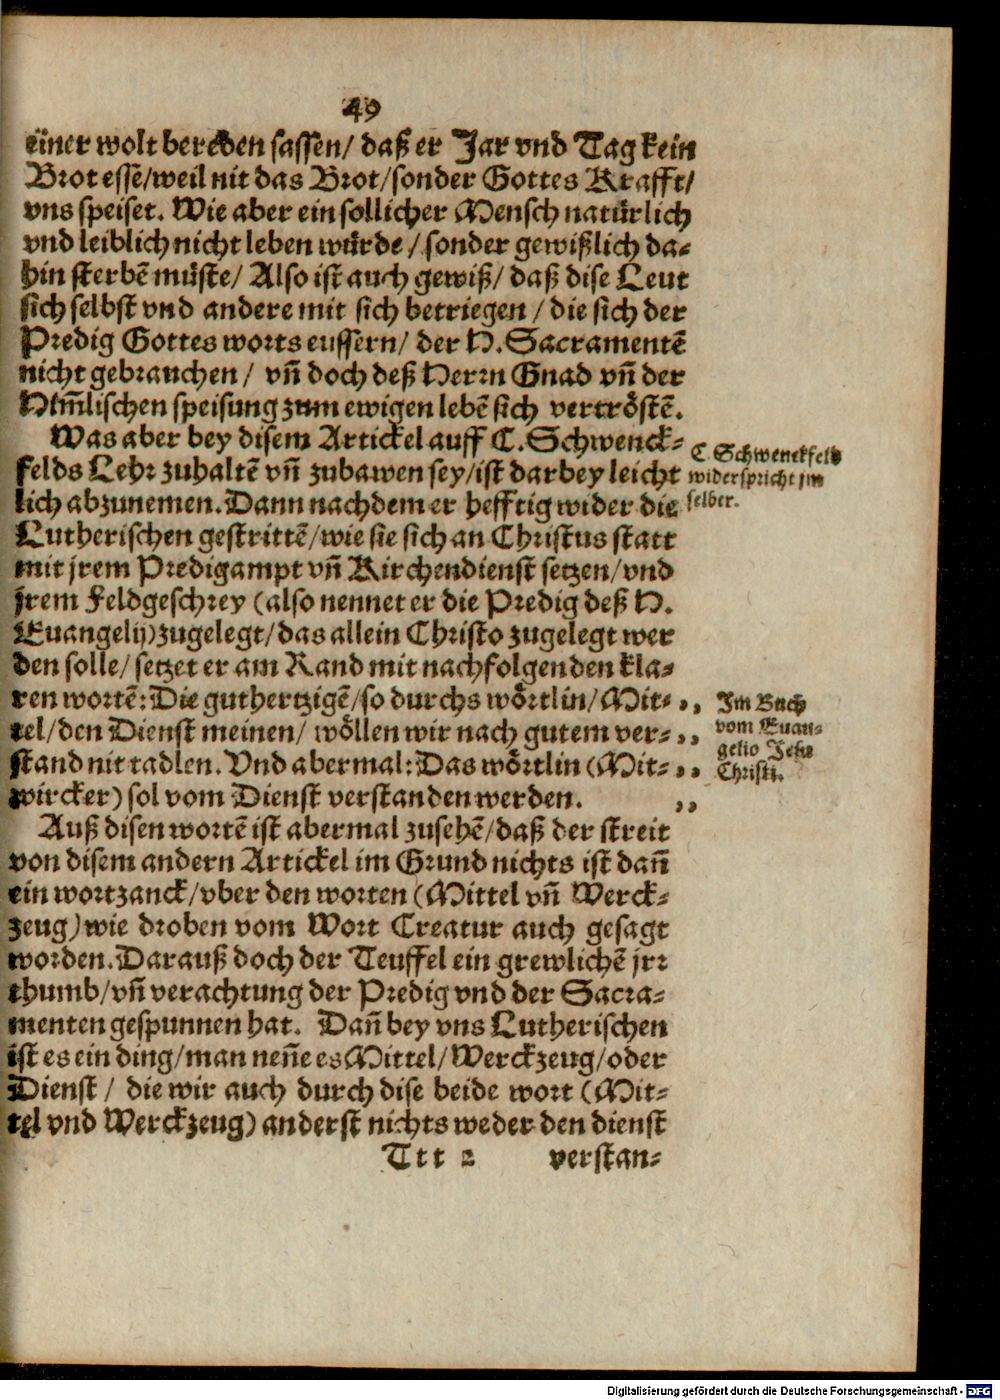 49
einer wolt bereden lassen/ daß er Jar vnd Tag kein
Brot essē/weil nit das Brot/sonder Gottes Krafft/
vns speiset. Wie aber ein sollicher Mensch natürlich
vnd leiblich nicht leben würde/ sonder gewißlich da-
hin sterbē müste/ Also ist auch gewiß/ daß dise Leut
sich selbst vnd andere mit sich betriegen/ die sich der
Predig Gottes worts eussern/ der H. Sacramentē
nicht gebrauchen/ vñ doch deß Herrn Gnad vñ der
Him̃lischen speisung zum ewigen lebē sich vertröstē.
Was aber bey disem Artickel auff C. Schwenck-
felds Lehr zuhaltē vñ zubawen sey/ist darbey leicht
lich abzunemen. Dann nachdem er hefftig wider die
C. Schwenckfeld
widerspricht jm
selber.
Lutherischen gestrittē/wie sie sich an Christus statt
mit jrem Predigampt vñ Kirchendienst setzen/vnd
jrem Feldgeschrey (also nennet er die Predig deß H.
Euangelij) zugelegt/das allein Christo zugelegt wer
den solle/ setzet er am Rand mit nachfolgenden kla-
ren wortē: Die guthertzigē/so durchs wörtlin/Mit- ,,
tel/den Dienst meinen/ wöllen wir nach gutem ver- ,,
stand nit tadlen. Vnd abermal: Das wörtlin (Mit- ,,
wircker) sol vom Dienst verstanden werden. ,,
Im Buch
vom Euan-
gelio Jesu
Christi.
Auß disen wortē ist abermal zusehē/daß der streit
von disem andern Artickel im Grund nichts ist dañ
ein wortzanck/vber den worten (Mittel vñ Werck-
zeug) wie droben vom Wort Creatur auch gesagt
worden. Darauß doch der Teuffel ein grewlichē jrr
thumb/vñ verachtung der Predig vnd der Sacra-
menten gespunnen hat. Dañ bey vns Lutherischen
ist es ein ding/man neñe es Mittel/Werckzeug/oder
Dienst/ die wir auch durch dise beide wort (Mit-
tel vnd Werckzeug) anderst nichts weder den dienst
Ttt 2 verstan-
Digitalisierung gefördert durch die Deutsche Forschungsgemeinschaft - DFG